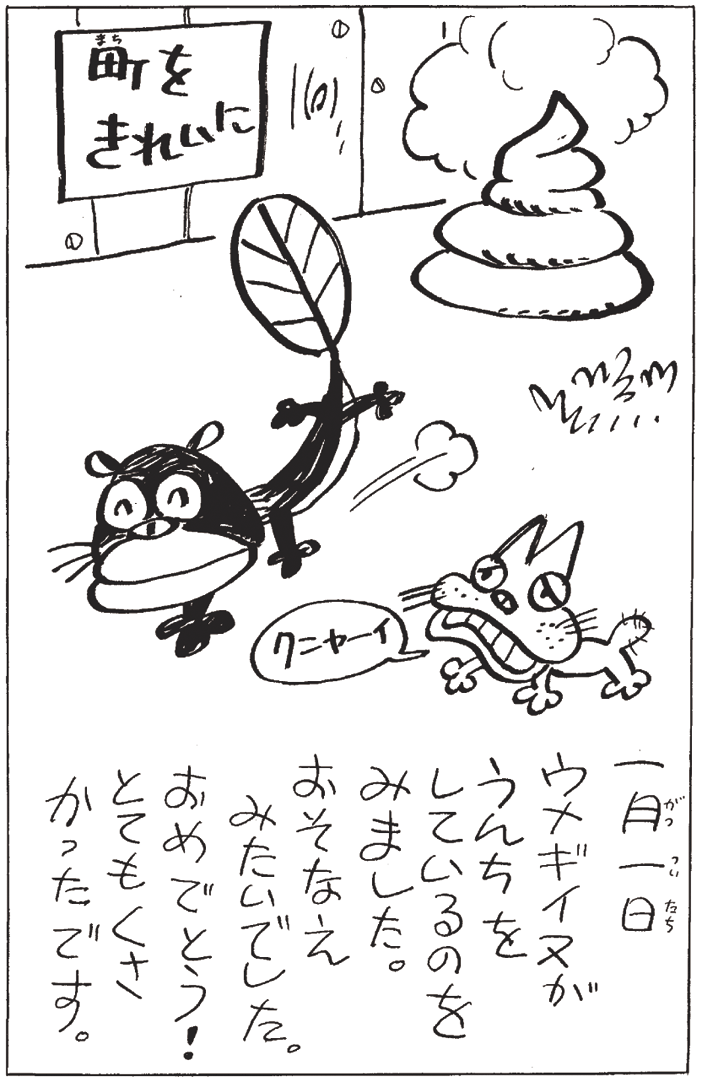 町を
きれいに
クニャーイ
一月一日
ウメギイヌが
うんちを
しているのを
みました。
おそなえ
みたいでした。
おめでとう!
とてもくさ
かったです。
まち
がつ
ついたち